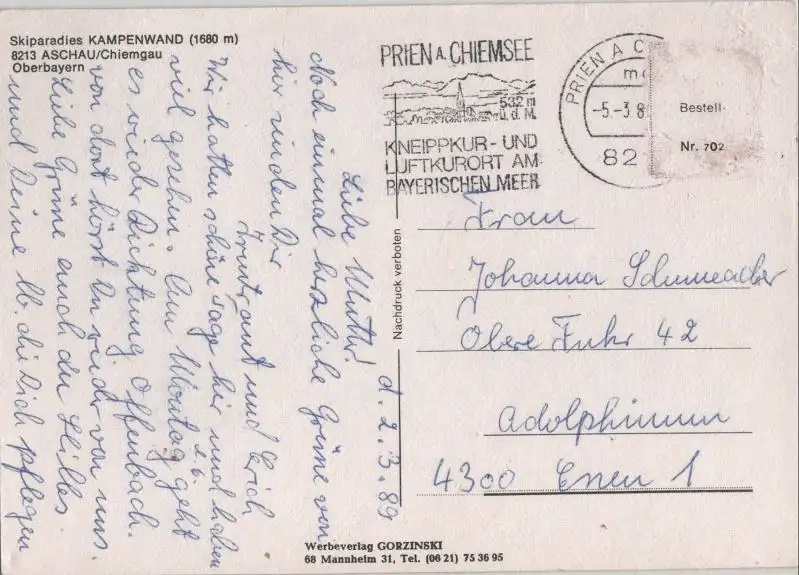 Skiparadies KAMPENWAND (1680 m)
8213 ASCHAU/Chiemgau
Oberbayern
d. 2.3.89
Liebe Mutter!
Noch einmal herzliche Grüsse von
hier senden Dir
Irmtraut und Erich
Wir hatten schöne Tage hier und haben
viel gesehen. Am Montag geht
es wieder Richtung Offenbach.
von dort hörst Du wieder von uns.
Liebe Grüsse auch an
und Deine lb. die Dich pflegen
PRIEN A. CHIEMSEE
532 m
ü. d. M.
KNEIPPKUR- UND
LUFTKURORT AM
BAYERISCHEN MEER
PRIEN A C
-5.-3.8
82
Bestell-
Nr. 702
Nachdruck verboten
Frau
Johanna Schumacher
Obere Fuhr 42
Adolphinum
4300 Essen 1
Werbeverlag GORZINSKI
68 Mannheim 31, Tel. (06 21) 75 36 95